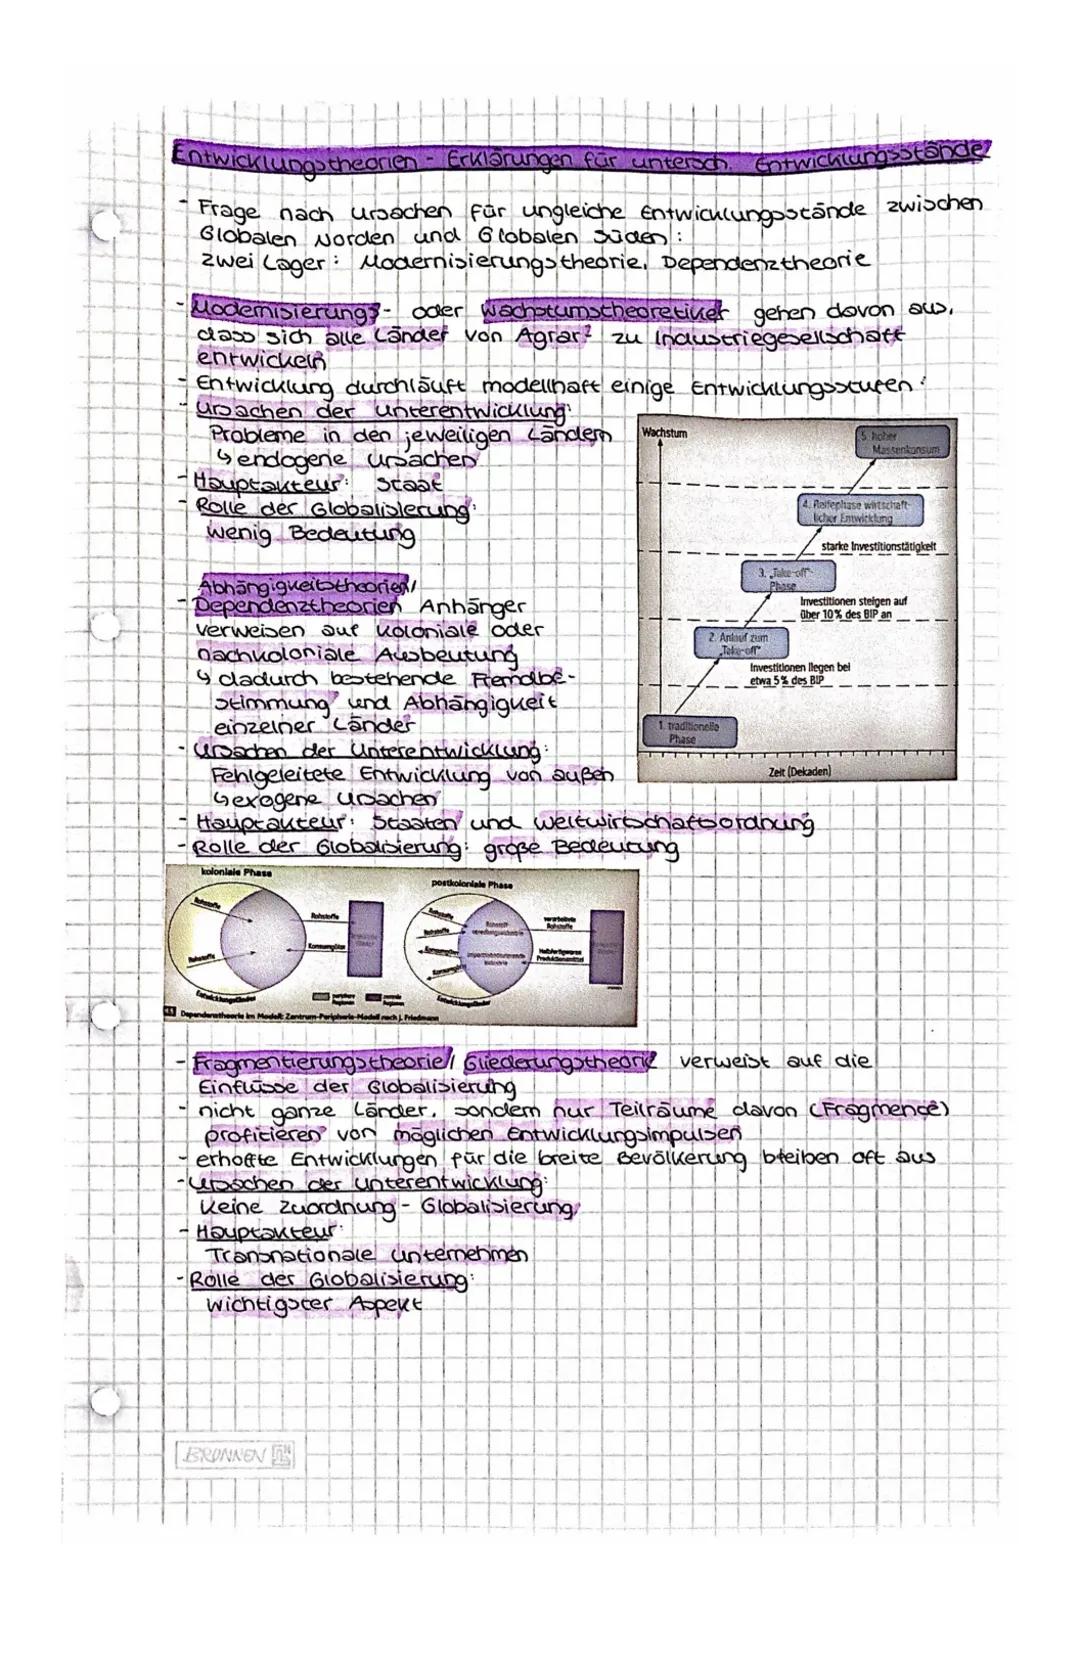 Entwicklungstheorien - Erklärungen für untersch. Entwicklungsstände
- Frage nach Ursachen für ungleiche Entwicklungsstände zwischen
Globalen Norden und Globalen Süden:
zwei Lager: Modernisierungstheorie, Dependenztheorie
- Modernisierungs- oder Wachstumstheoretiker gehen davon aus,
dass sich alle Länder von Agrar- zu Industriegesellschaft
entwickeln
- Entwicklung durchläuft modellhaft einige Entwicklungsstufen:
- Ursachen der Unterentwicklung:
Probleme in den jeweiligen Ländern
↳ endogene Ursachen
- Hauptakteur: Staat
- Rolle der Globalisierung:
wenig Bedeutung
Wachstum
5. hoher
Massenkonsum
4. Reifephase wirtschaft-
licher Entwicklung
starke Investitionstätigkeit
3. „Take-off“-
Phase
Investitionen steigen auf
über 10% des BIP an
2. Anlauf zum
„Take-off“
Investitionen liegen bei
etwa 5% des BIP
1. traditionelle
Phase
Zeit (Dekaden)
Abhängigkeitstheorien/
- Dependenztheorien Anhänger
verweisen auf koloniale oder
nachkoloniale Ausbeutung
↳ dadurch bestehende Fremdbe-
stimmung und Abhängigkeit
einzelner Länder
- Ursachen der Unterentwicklung:
Fehlgeleitete Entwicklung von außen
↳ exogene Ursachen
- Hauptakteur: Staaten und Weltwirtschaftsordnung
- Rolle der Globalisierung: große Bedeutung
koloniale Phase
Rohstoffe
Rohstoffe
Rohstoffe
Konsumgüter
Entwicklungsländer
postkoloniale Phase
Rohstoffe
Rohstoffe
Konsumgüter
Konsumgüter
Rohstoff-
veredlungsindustrie
importsubstituierende
Industrie
verarbeitete
Rohstoffe
Halbfertigwaren
Produktionsmittel
Entwicklungsländer
periphere
Regionen
zentrale
Regionen
Dependenztheorie im Modell: Zentrum-Peripherie-Modell nach J. Friedmann
- Fragmentierungstheorie/ Gliederungstheorie verweist auf die
Einflüsse der Globalisierung
- nicht ganze Länder, sondern nur Teilräume davon (Fragmente)
profitieren von möglichen Entwicklungsimpulsen
- erhoffte Entwicklungen für die breite Bevölkerung bleiben oft aus
- Ursachen der Unterentwicklung:
Keine Zuordnung - Globalisierung
- Hauptakteur:
Transnationale Unternehmen
- Rolle der Globalisierung:
wichtigster Aspekt
BRUNNEN